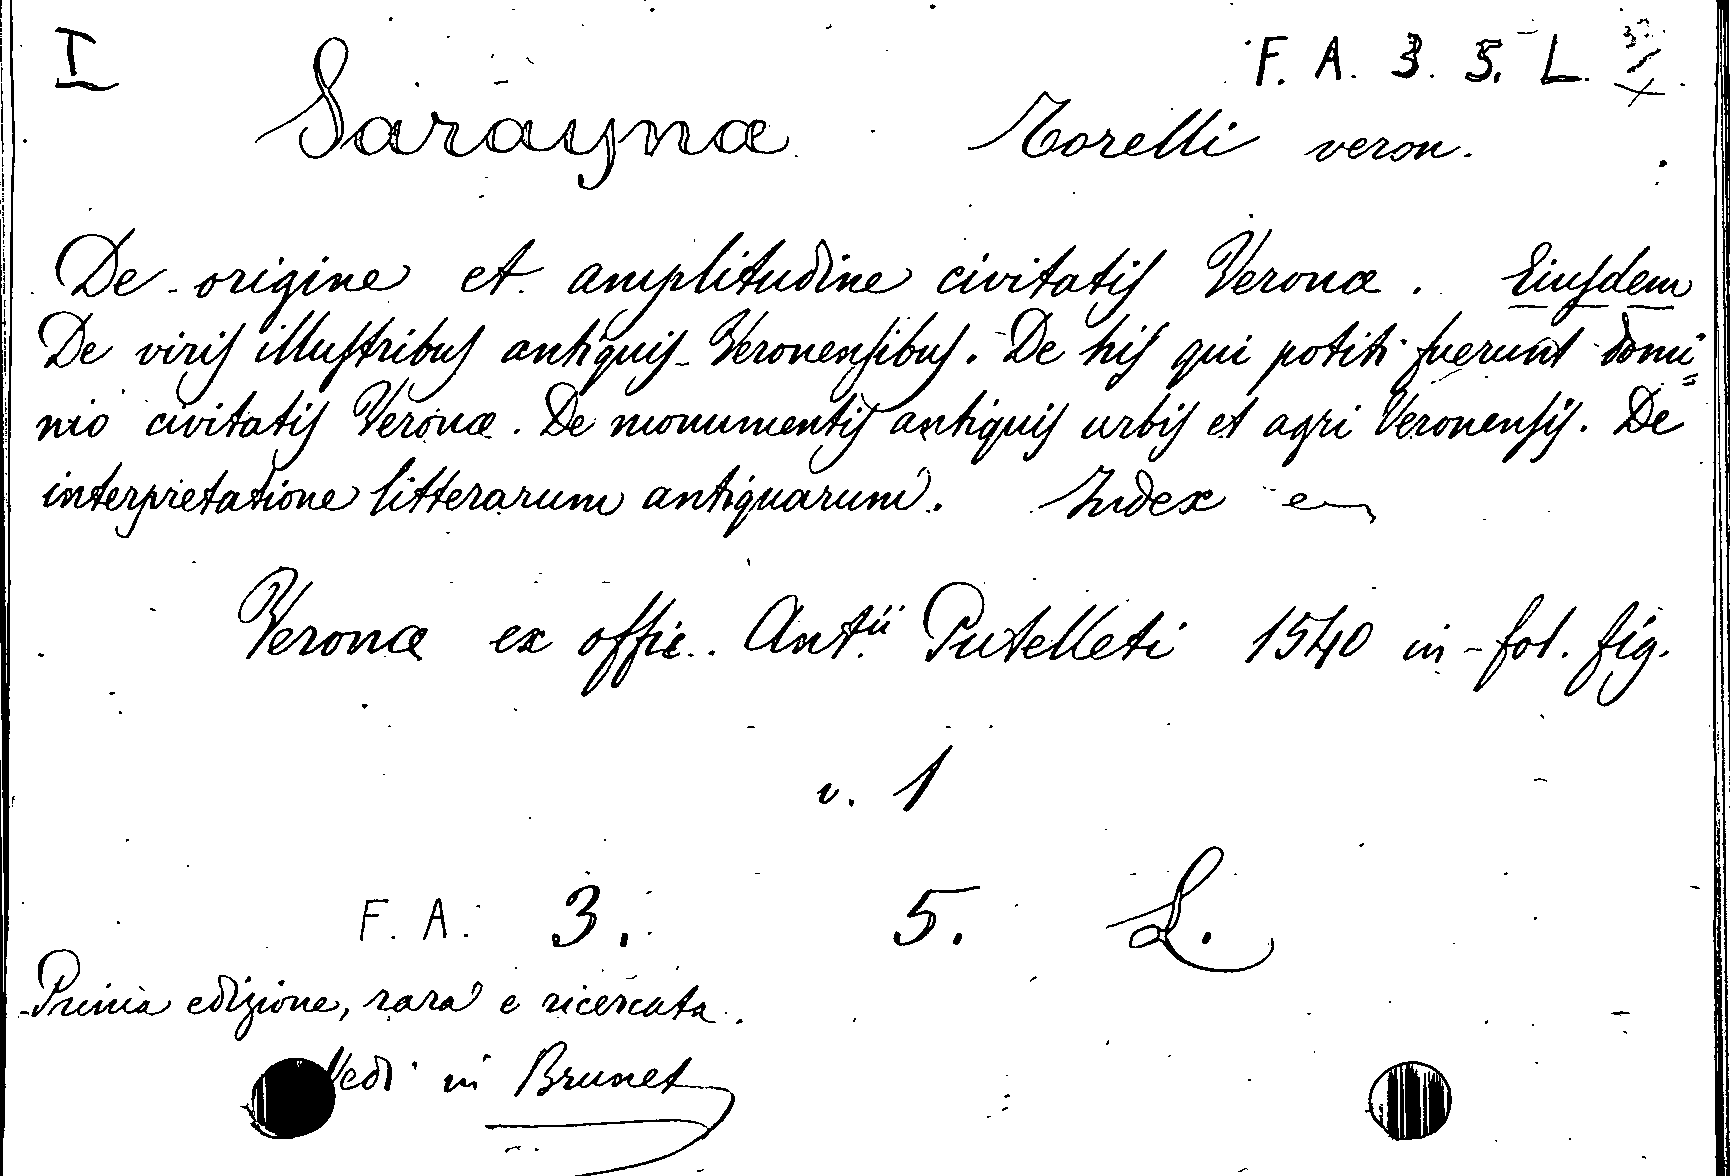 I
F. A. 3. 5. L.
Saraynæ Torelli veron.
De origine et amplitudine civitatis Veronæ. Eiusdem
De viris illustribus antiquis Veronensibus. De his qui potiti fuerunt domi=
nio civitatis Veronæ. De monumentis antiquis urbis et agri Veronensis. De
interpretatione litterarum antiquarum. Index
Veronæ ex offic. Ant.ii Putelleti 1540 in-fol. fig.
v. 1
F. A. 3. 5. L.
Prima edizione, rara e ricercata.
Vedi in Brunet